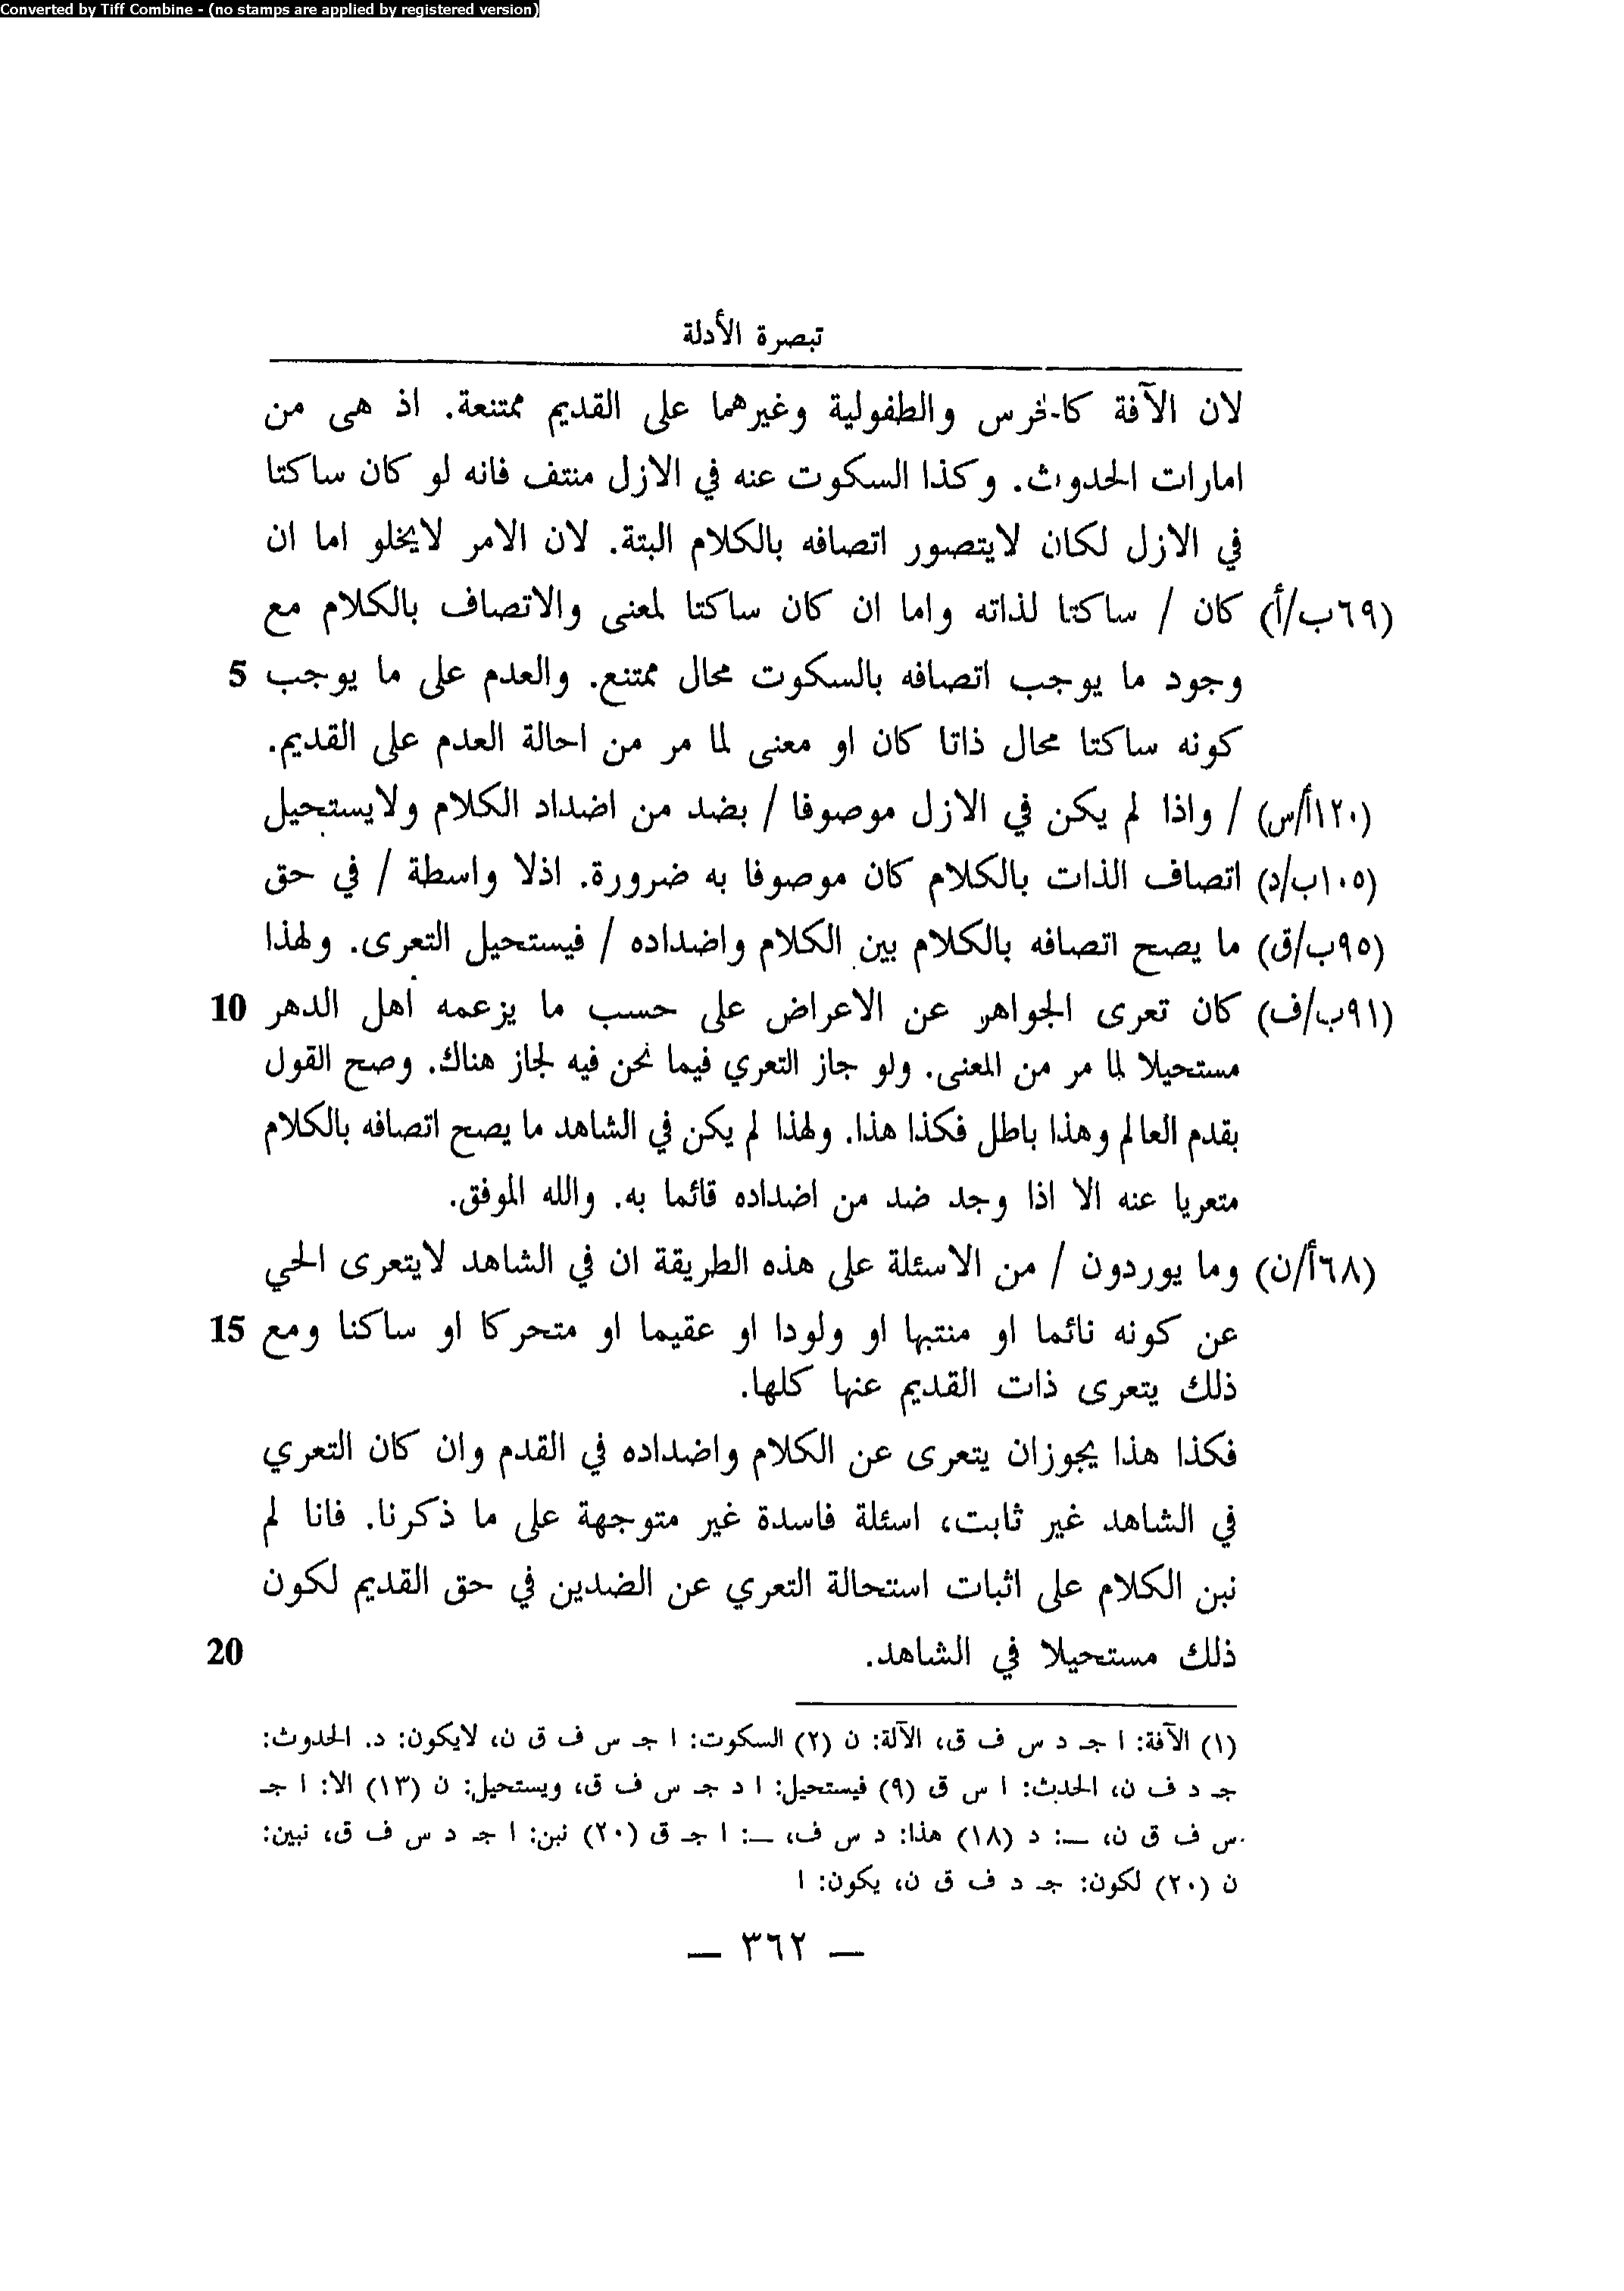 Converted by Tiff Combine - (no stamps are applied by registered version)
تبصرة الأدلة
لان الآفة كالخرس والطفولية وغيرهما على القديم ممتنعة. اذ هى من
امارات الحدوث. وكذا السكوت عنه في الازل منتف فانه لو كان ساكتا
في الازل لكان لايتصور اتصافه بالكلام البتة. لان الامر لايخلو اما ان
(٦٩ب/أ) كان / ساكتا لذاته واما ان كان ساكتا لمعنى والاتصاف بالكلام مع
وجود ما يوجب اتصافه بالسكوت محال ممتنع. والعدم على ما يوجب 5
كونه ساكتا محال ذاتا كان او معنى لما مر من احالة العدم على القديم.
(١٢٠أ/س) / واذا لم يكن في الازل موصوفا / بضد من اضداد الكلام ولايستحيل
(١٠٥ب/د) اتصاف الذات بالكلام كان موصوفا به ضرورة. اذلا واسطة / في حق
(٩٥ب/ق) ما يصح اتصافه بالكلام بين الكلام واضداده / فيستحيل التعرى. ولهذا
(٩١ب/ف) كان تعرى الجواهر عن الاعراض على حسب ما يزعمه أهل الدهر 10
مستحيلا لما مر من المعنى. ولو جاز التعري فيما نحن فيه لجاز هناك. وصح القول
بقدم العالم وهذا باطل فكذا هذا. ولهذا لم يكن في الشاهد ما يصح اتصافه بالكلام
متعريا عنه الا اذا وجد ضد من اضداده قائما به. والله الموفق.
(٦٨أ/ن) وما يوردون / من الاسئلة على هذه الطريقة ان في الشاهد لايتعرى الحي
عن كونه نائما او منتبها او ولودا او عقيما او متحركا او ساكنا ومع 15
ذلك يتعرى ذات القديم عنها كلها.
فكذا هذا يجوزان يتعرى عن الكلام واضداده في القدم وان كان التعري
في الشاهد غير ثابت، اسئلة فاسدة غير متوجهة على ما ذكرنا. فانا لم
نبن الكلام على اثبات استحالة التعري عن الضدين في حق القديم لكون
ذلك مستحيلا في الشاهد. 20
(١) الآفة: ا جـ د س ف ق، الآلة: ن (٢) السكوت: ا جـ س ف ق ن، لايكون: د. الحدوث:
جـ د ف ن، الحدث: ا س ق (٩) فيستحيل: ا د جـ س ف ق، ويستحيل: ن (١٣) الا: ا جـ
س ف ق ن، ــ: د (١٨) هذا: د س ف، ــ: ا جـ ق (٢٠) نبن: ا جـ د س ف ق، نبين:
ن (٢٠) لكون: جـ د ف ق ن، يكون: ا
— ٣٦٢ —